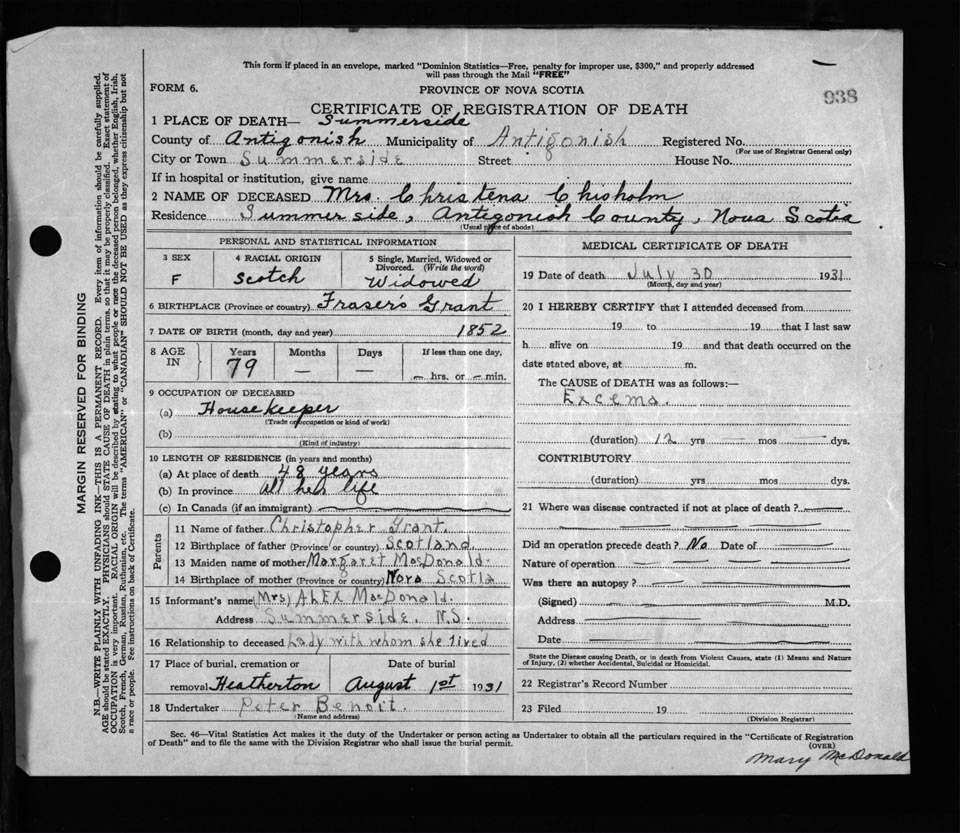 This form if placed in an envelope, marked "Dominion Statistics—Free, penalty for improper use, $300," and properly addressed
will pass through the Mail "FREE"
FORM 6.
PROVINCE OF NOVA SCOTIA
938
CERTIFICATE OF REGISTRATION OF DEATH
1 PLACE OF DEATH— Summerside
County of Antigonish Municipality of Antigonish Registered No.
(For use of Registrar General only)
City or Town Summerside Street House No.
If in hospital or institution, give name
2 NAME OF DECEASED Mrs. Christena Chisholm
Residence Summerside, Antigonish County, Nova Scotia
(Usual place of abode)
PERSONAL AND STATISTICAL INFORMATION
3 SEX
F
4 RACIAL ORIGIN
Scotch
5 Single, Married, Widowed or
Divorced. (Write the word)
Widowed
6 BIRTHPLACE (Province or country) Fraser's Grant
7 DATE OF BIRTH (month, day and year) 1852
8 AGE
IN
Years
79
Months
—
Days
—
If less than one day,
— hrs. or — min.
9 OCCUPATION OF DECEASED
(a) Housekeeper
(Trade or occupation or kind of work)
(b)
(Kind of industry)
10 LENGTH OF RESIDENCE (in years and months)
(a) At place of death 48 years
(b) In province all her life
(c) In Canada (if an immigrant)
Parents
11 Name of father Christopher Grant.
12 Birthplace of father (Province or country) Scotland.
13 Maiden name of mother Margaret MacDonald.
14 Birthplace of mother (Province or country) Nova Scotia
15 Informant's name (Mrs) Alex MacDonald.
Address Summerside. N.S.
16 Relationship to deceased Lady with whom she lived
17 Place of burial, cremation or
removal Heatherton
Date of burial
August 1st 1931
18 Undertaker Peter Benoit.
(Name and address)
MEDICAL CERTIFICATE OF DEATH
19 Date of death July 30 1931
(Month, day and year)
20 I HEREBY CERTIFY that I attended deceased from
19 to 19 that I last saw
h alive on 19 and that death occurred on the
date stated above, at m.
The CAUSE OF DEATH was as follows:—
Excema.
(duration) 12 yrs — mos — dys.
CONTRIBUTORY
(duration) yrs mos dys.
21 Where was disease contracted if not at place of death?
Did an operation precede death? No Date of
Nature of operation
Was there an autopsy?
(Signed) M.D.
Address
Date
State the Disease causing Death, or in death from Violent Causes, state (1) Means and Nature
of Injury, (2) whether Accidental, Suicidal or Homicidal.
22 Registrar's Record Number
23 Filed 19
(Division Registrar)
Sec. 46—Vital Statistics Act makes it the duty of the Undertaker or person acting as Undertaker to obtain all the particulars required in the "Certificate of Registration
of Death" and to file the same with the Division Registrar who shall issue the burial permit.
(OVER)
Mary McDonald
MARGIN RESERVED FOR BINDING
N.B.—WRITE PLAINLY WITH UNFADING INK—THIS IS A PERMANENT RECORD. Every item of information should be carefully supplied.
AGE should be stated EXACTLY. PHYSICIANS should STATE CAUSE OF DEATH in plain terms, so that it may be properly classified. Exact statement of
OCCUPATION is very important. RACIAL ORIGIN will be described by stating to what people or race the deceased person belonged, whether English, Irish,
Scotch, French, German, Russian, Ruthenian, etc. The terms "AMERICAN" or "CANADIAN" SHOULD NOT BE USED as they express citizenship but not
a race or people. Fee instructions on back of Certificate.